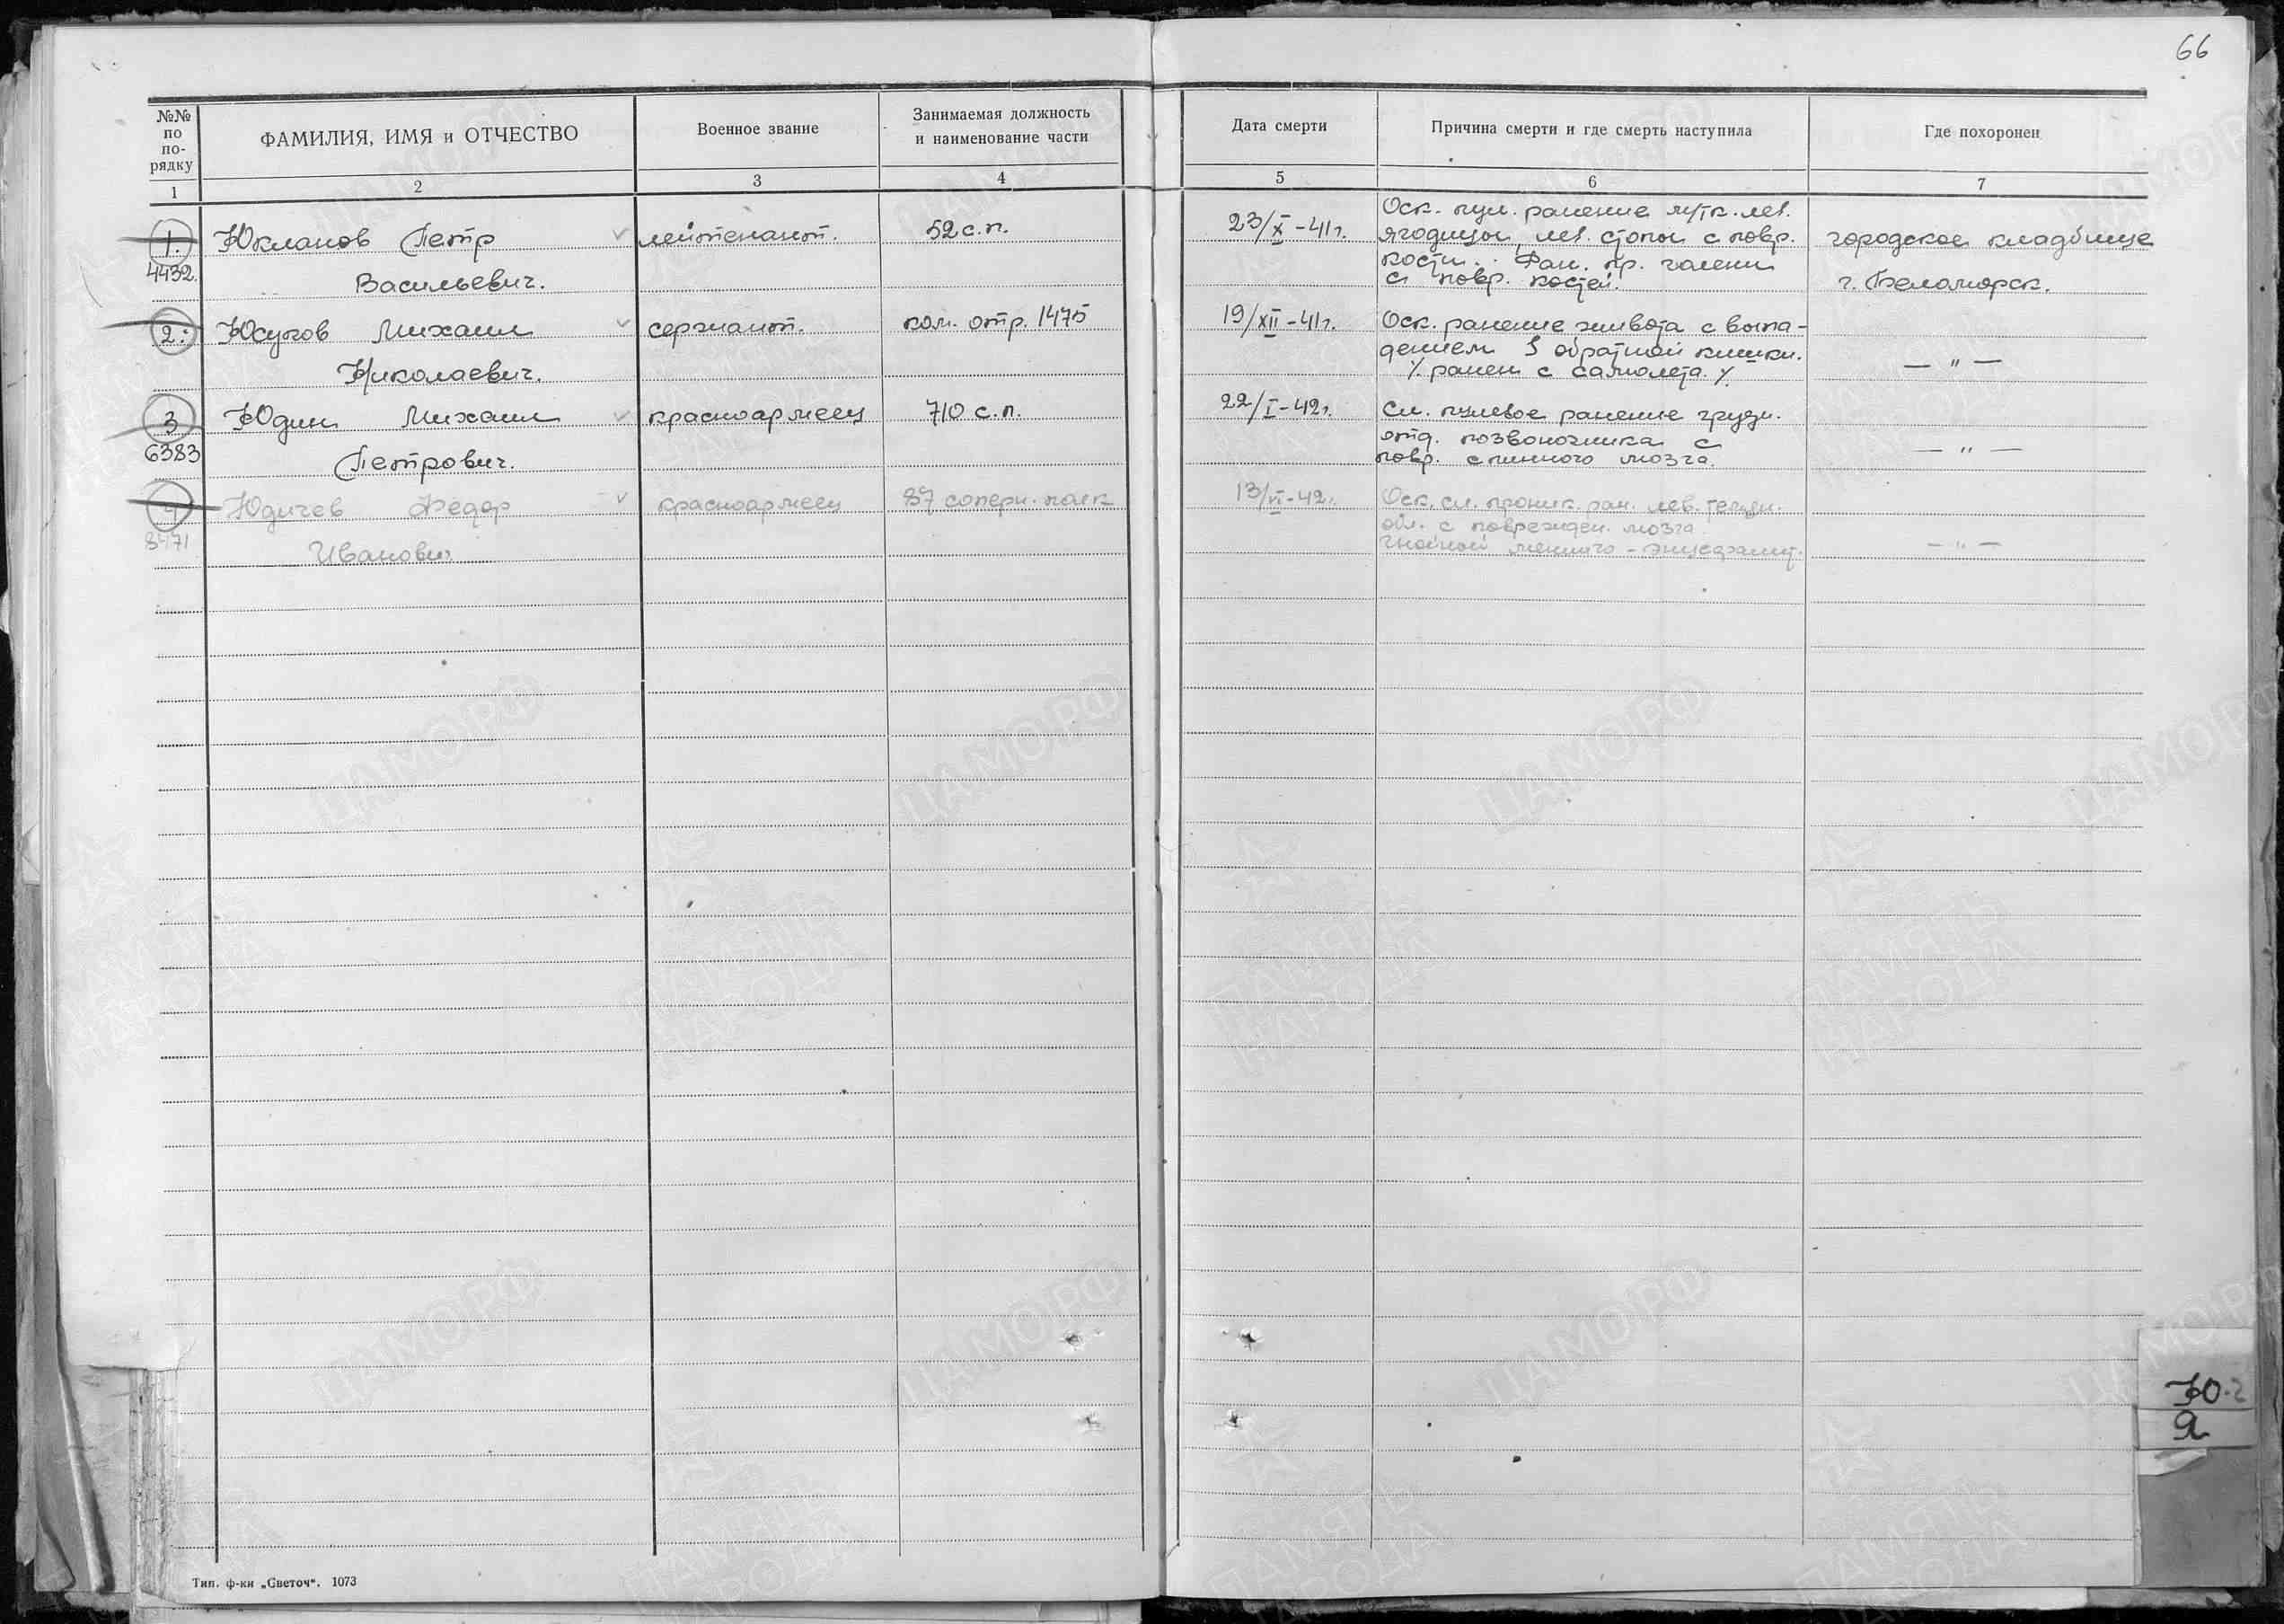 66
№№ по по-рядку
ФАМИЛИЯ, ИМЯ и ОТЧЕСТВО
Военное звание
Занимаемая должность и наименование части
Дата смерти
Причина смерти и где смерть наступила
Где похоронен
1 2 3 4 5 6 7
1. Юкланов Петр лейтенант. 52 с.п. 23/X-41г. Оск. пул. ранение м/тк. лев.
ягодицы, лев. стопы с повр. городское кладбище
4432 Васильевич. кости. Ран. пр. голени
с повр. костей. г. Беломорск.
2. Юсупов Михаил сержант. ком. отр. 1475 19/XII-41г. Оск. ранение живота с выпа-
Николаевич. дением S образной кишки. — " —
/. ранен с самолета. /.
3 Юдин Михаил красноармеец 710 с.п. 22/I-42г. Сл. пулевое ранение грудн.
отд. позвоночника с
6383 Петрович. повр. спинного мозга. — " —
4 Юдичев Федор красноармеец 87 саперн. полк 13/VI-42г. Оск. сл. проник. ран. лев.
обл. с поврежден. мозга.
8471 Иванович гнойной менинго-энцефалит. — " —
Ю-2
Я
Тип. ф-ки „Светоч“. 1073
ЦАМО.РФ
ПАМЯТЬ НАРОДА